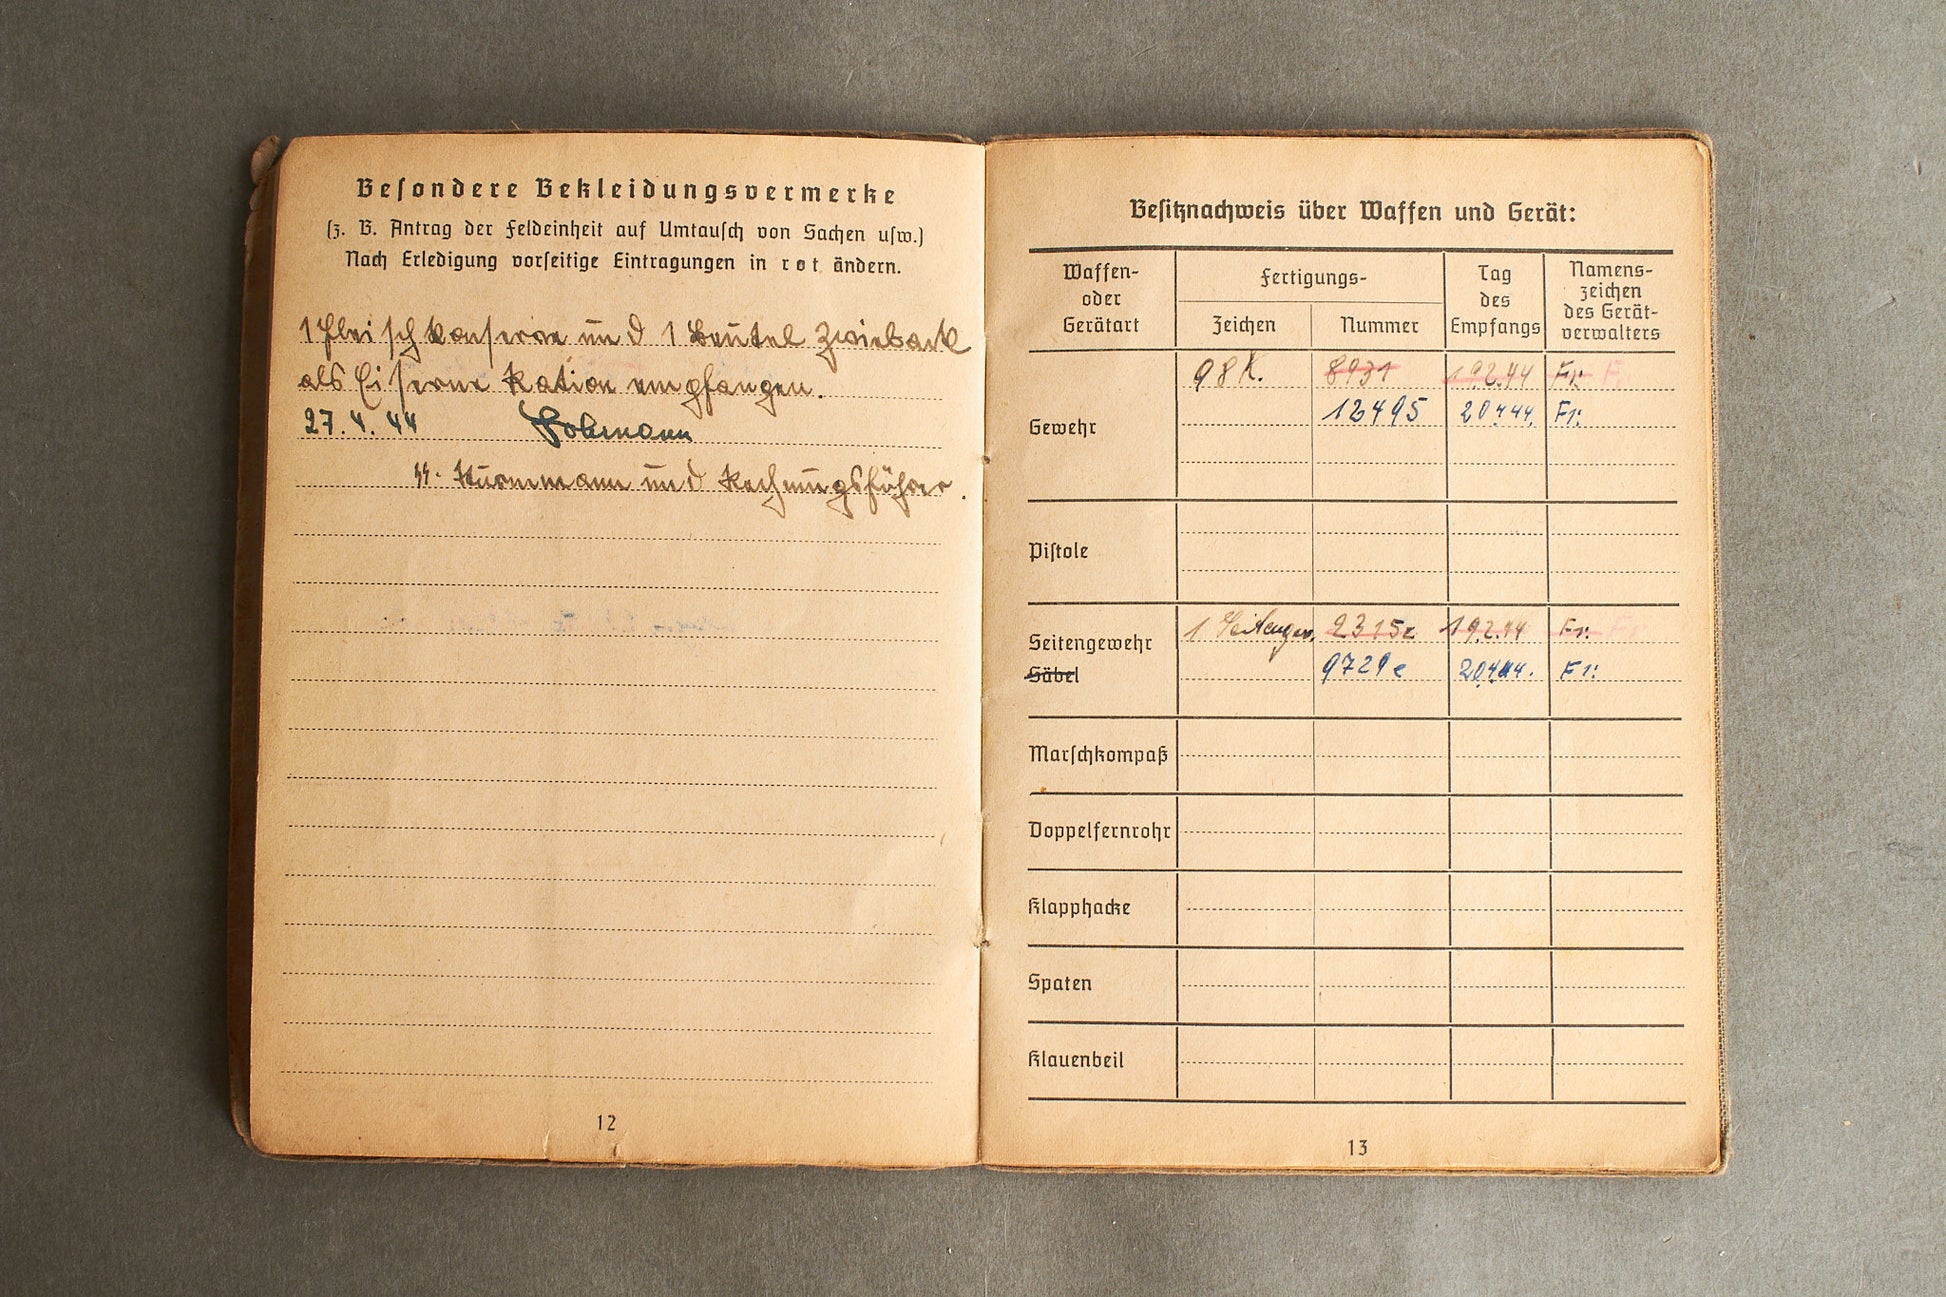 Besondere Bekleidungsvermerke
(z. B. Antrag der Feldeinheit auf Umtausch von Sachen usw.)
Nach Erledigung vorseitige Eintragungen in rot ändern.
1 Fleischkonserve und 1 Beutel Zwieback
als Eiserne Ration empfangen.
27.4.44
SS-Sturmmann und Rechnungsführer.
12
Besitznachweis über Waffen und Gerät:
Waffen- oder Gerätart
Fertigungs-
Zeichen
Nummer
Tag des Empfangs
Namens-zeichen des Gerät-verwalters
Gewehr
98K. 8931 19.2.44 Fr:
12495 20.4.44. Fr:
Pistole
Seitengewehr
1 Seitengew. 2315c 19.2.44 Fr:
Säbel
9729e 20.4.44. Fr:
Marschkompaß
Doppelfernrohr
Klapphacke
Spaten
Klauenbeil
13